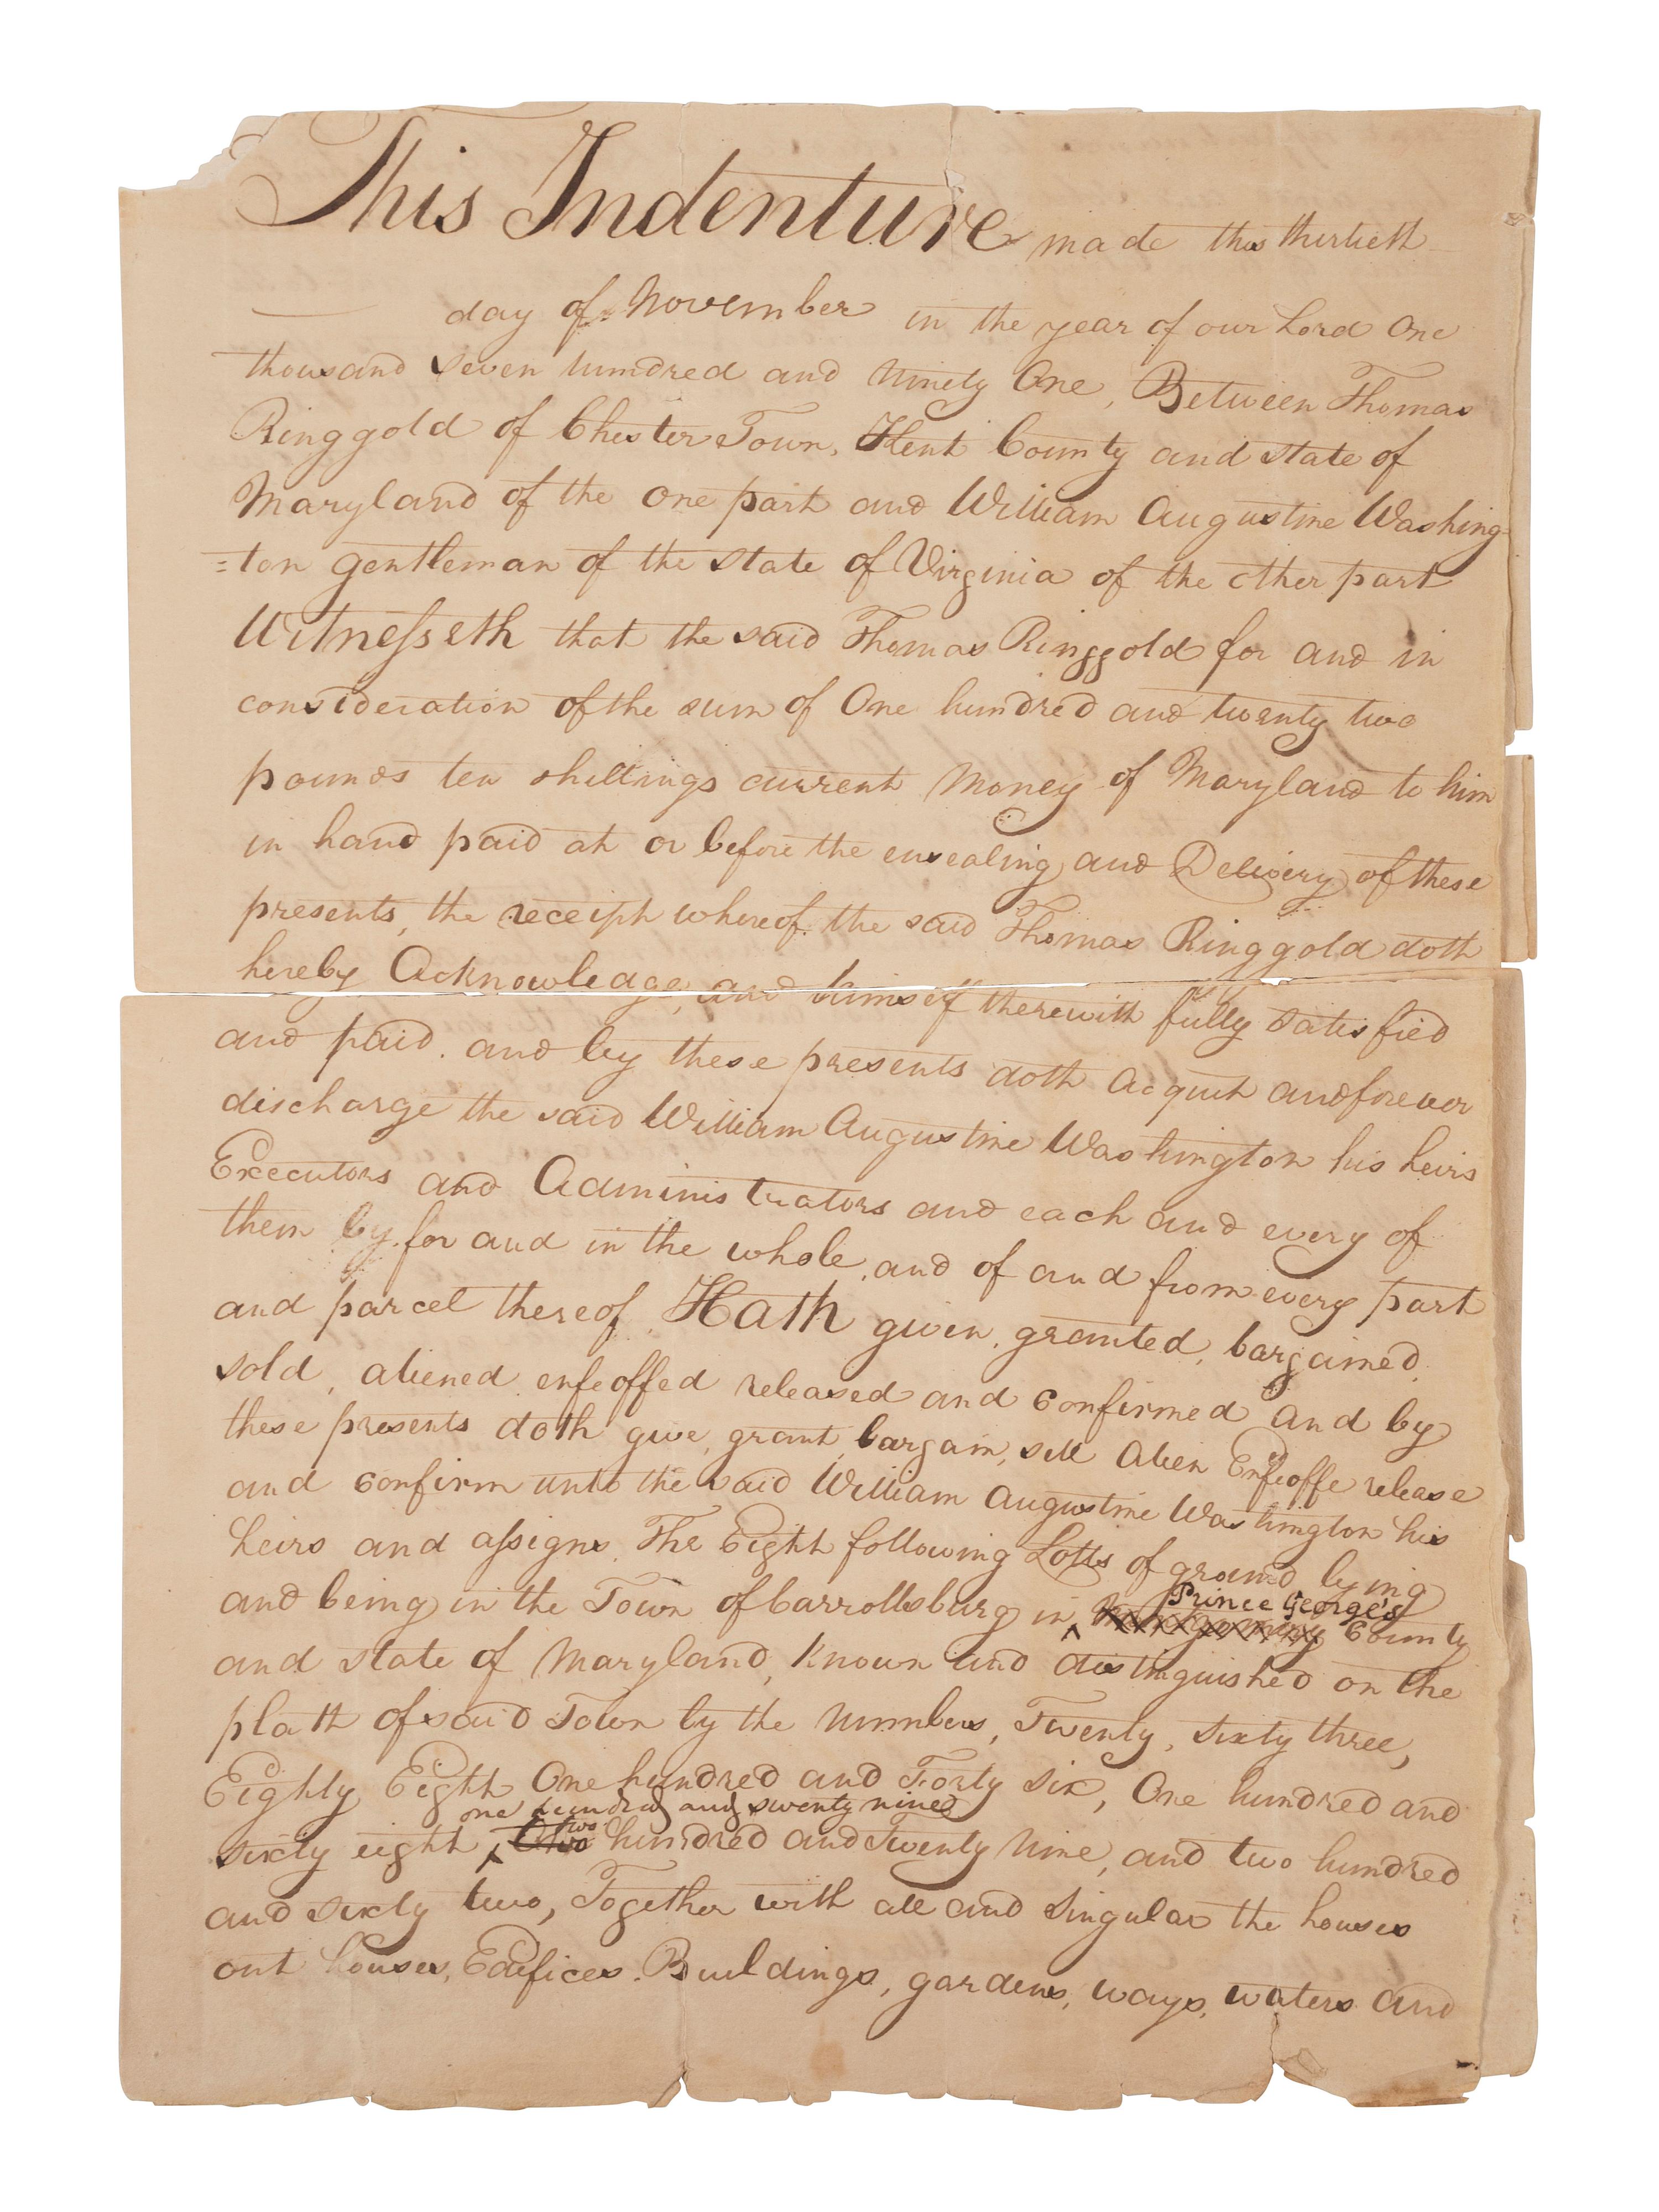 This Indenture made this thirtieth
day of November in the year of our Lord One
thousand seven hundred and ninety One, Between Thomas
Ringgold of Chester Town, Kent County and state of
Maryland of the one part and William Augustine Washing-
=ton gentleman of the state of Virginia of the other part
Witnesseth that the said Thomas Ringgold for and in
consideration of the sum of One hundred and twenty two
pounds ten shillings current Money of Maryland to him
in hand paid at or before the ensealing and Delivery of these
presents, the receipt whereof the said Thomas Ringgold doth
hereby Acknowledge, and himself therewith fully satisfied
and paid. and by these presents doth acquit and forever
discharge the said William Augustine Washington his heirs
Executors and Administrators and each and every of
them by, for and in the whole, and of and from every part
and parcel thereof, Hath given, granted, bargained,
sold, aliened enfeoffed released and confirmed and by
these presents doth give, grant, bargain, sell Alien Enfeoffe release
and confirm unto the said William Augustine Washington his
heirs and assigns. The Eight following Lotts of ground lying
Prince George's
and being in the Town of Carrollsburg in ^ County
and state of Maryland, known and distinguished on the
platt of said Town by the Numbers, Twenty, sixty three,
Eighty Eight One hundred and Forty six, One hundred and
one hundred and twenty nine
sixty eight, ^ two hundred and Twenty Nine, and two hundred
and sixty two, Together with all and singular the houses
out houses, Edifices. Buildings, gardens, ways, waters and